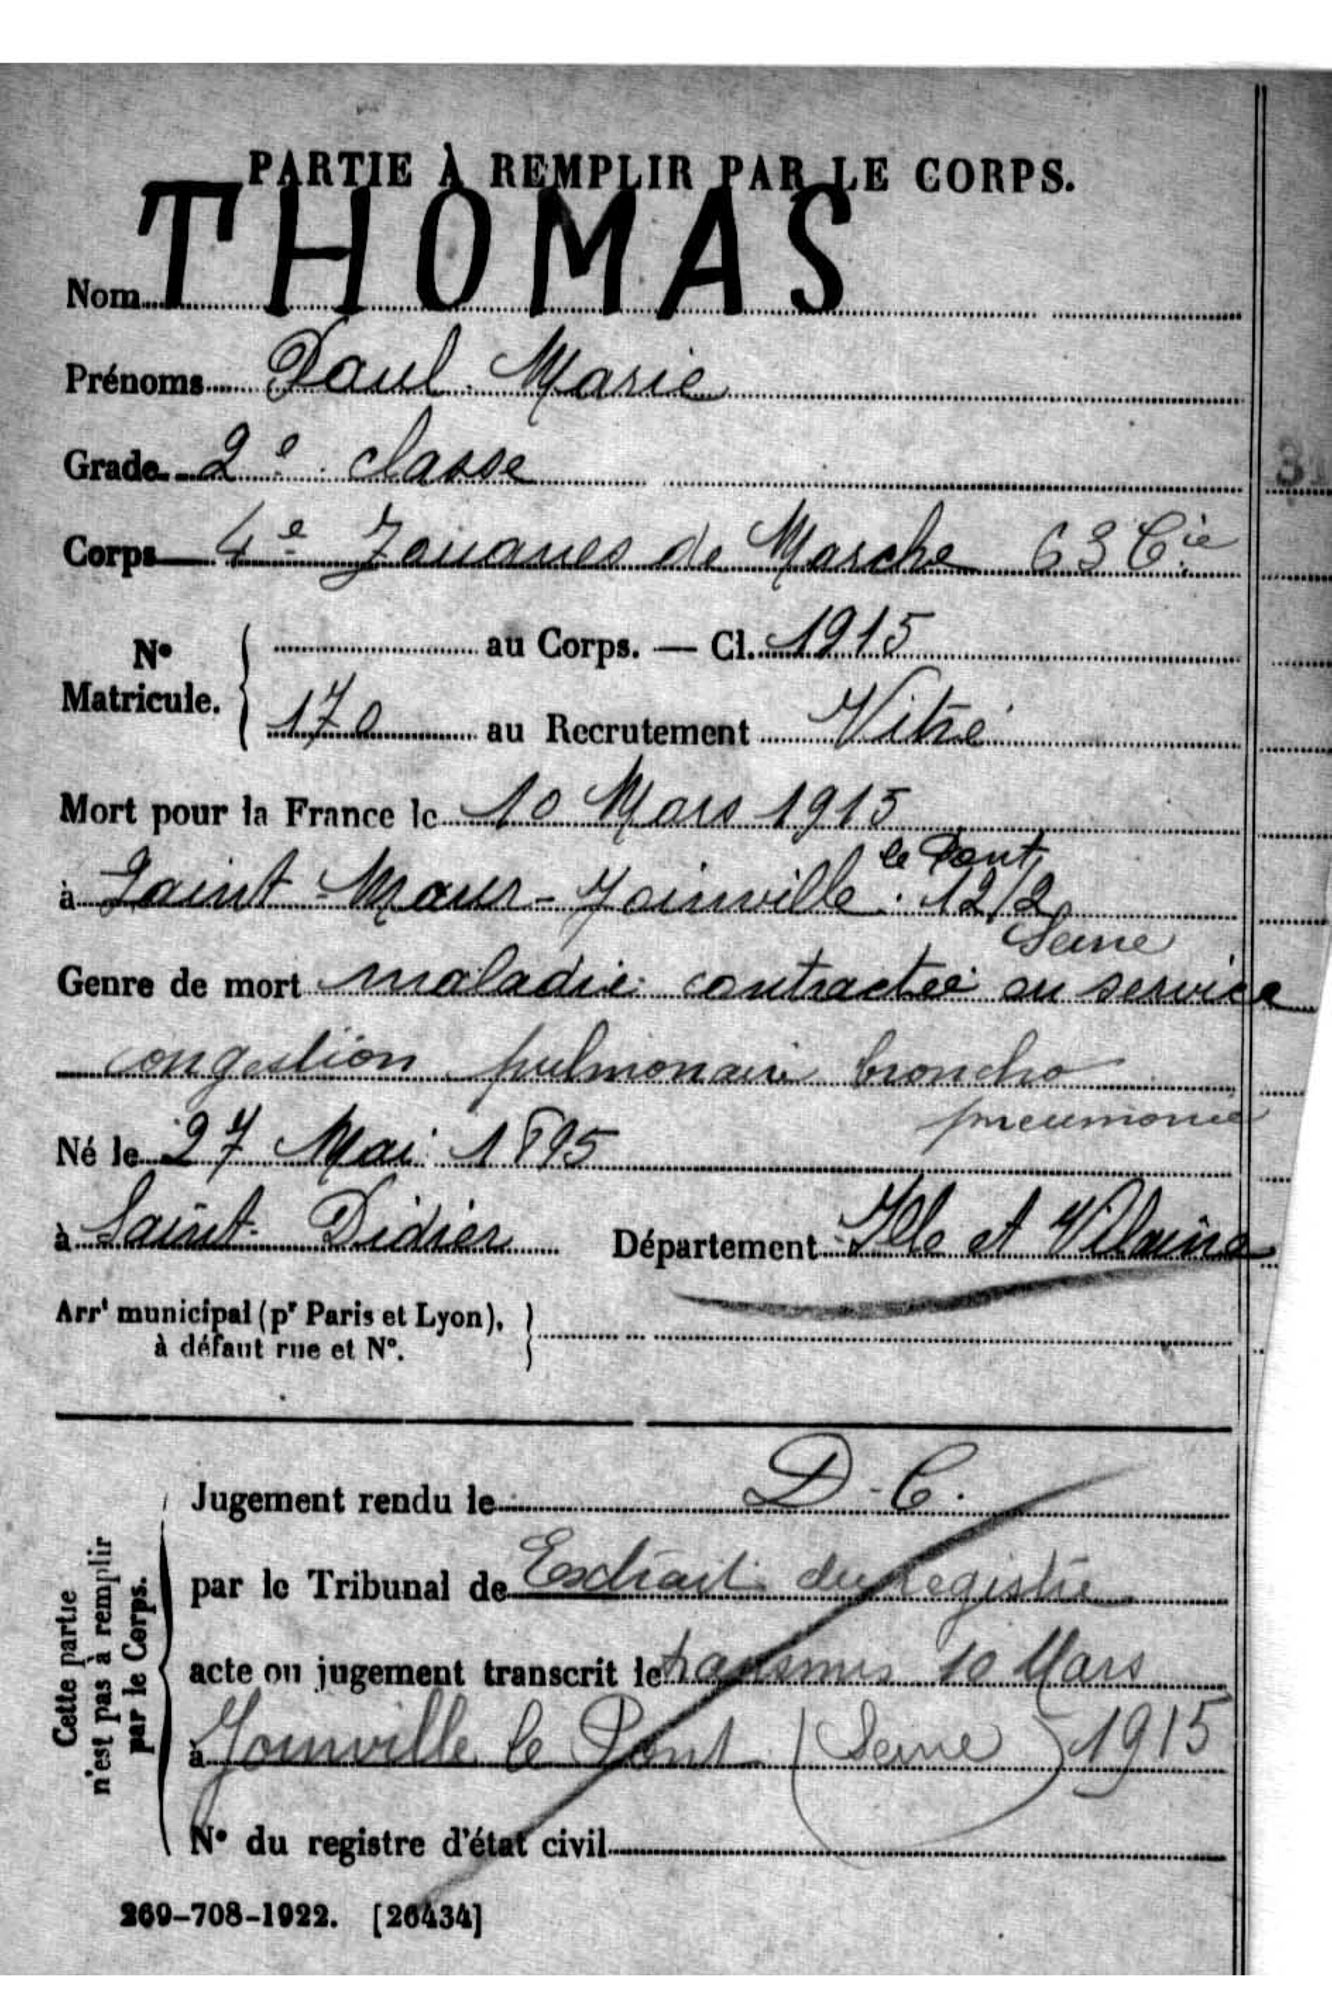 PARTIE À REMPLIR PAR LE CORPS.
Nom THOMAS
Prénoms Paul Marie
Grade 2e classe
Corps 4e Zouaves de Marche 63 Cie
No Matricule. { au Corps. — Cl. 1915
170 au Recrutement Vitré
Mort pour la France le 10 Mars 1915
à Saint-Maur-Joinville le Pont 12/2 Seine
Genre de mort maladie contractée au service
congestion pulmonaire broncho
pneumonie
Né le 27 Mai 1895
à Saint-Didier Département Ille et Vilaine
Arrt municipal (pr Paris et Lyon), }
à défaut rue et No.
Cette partie n'est pas à remplir par le Corps.
Jugement rendu le D.C.
par le Tribunal de Extrait du registre
acte ou jugement transcrit le transmis 10 Mars
à Joinville le Pont (Seine) 1915
No du registre d'état civil
269-708-1922. [26434]